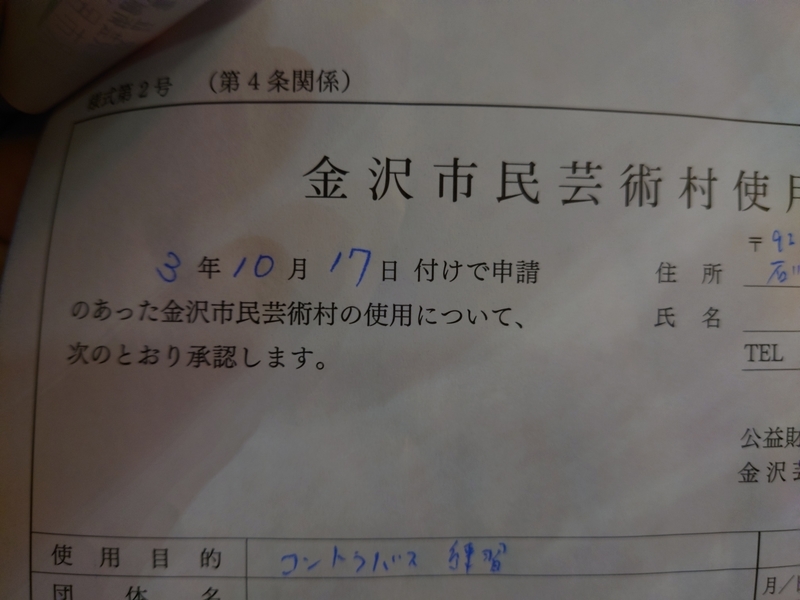 様式第2号 （第4条関係）
金沢市民芸術村使用
3年10月17日 付けで申請
のあった金沢市民芸術村の使用について、
次のとおり承認します。
〒92
住所 石川
氏名
TEL
公益財
金沢芸
使用目的 コントラバス 練習
団体名
月／日